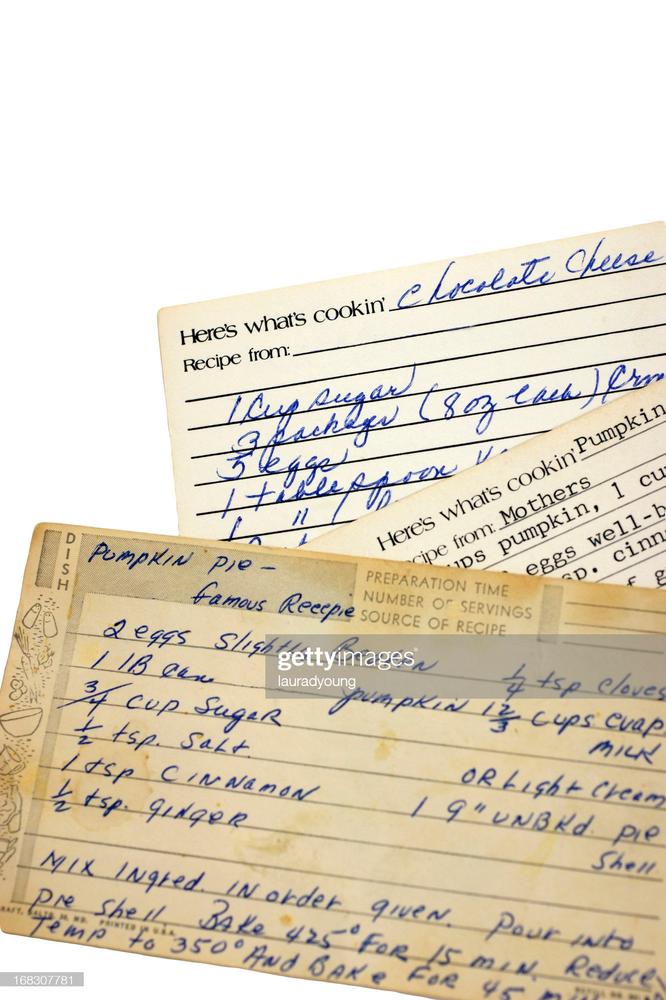 Here's what's cookin' Chocolate Cheese
Recipe from:
1 Cup sugar
3 package (8oz each) Crm
5 eggs
1 tablespoon
1 "
Here's what's cookin' Pumpkin
cipe from: Mothers
ups pumpkin, 1 cu
eggs well-b
sp. cinn
DISH
Pumpkin Pie -
Famous Recepie
PREPARATION TIME
NUMBER OF SERVINGS
SOURCE OF RECIPE
2 eggs Slightly
1 lB can pumpkin
3/4 cup Sugar
1/2 tsp. Salt
1 tsp Cinnamon
1/2 tsp. ginger
1/4 tsp cloves
1 2/3 cups evap.
milk
OR Light Cream
1 9" UNBKd. pie
Shell
Mix Ingred. In order given. Pour into
Pie Shell Bake 425° For 15 min. Reduce
Temp to 350° And Bake For 45 m
PRINTED IN U.S.A.
gettyimages
lauradyoung
168307781